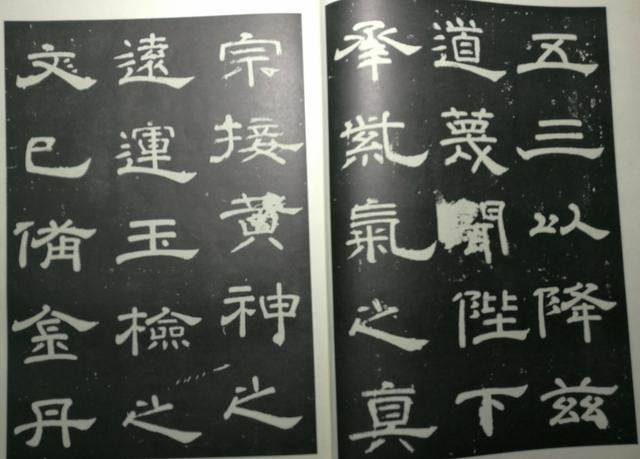 五三以降兹
道蔑聞陛下
承紫氣之真
宗接黄神之
遠運玉檢之
文已備金丹